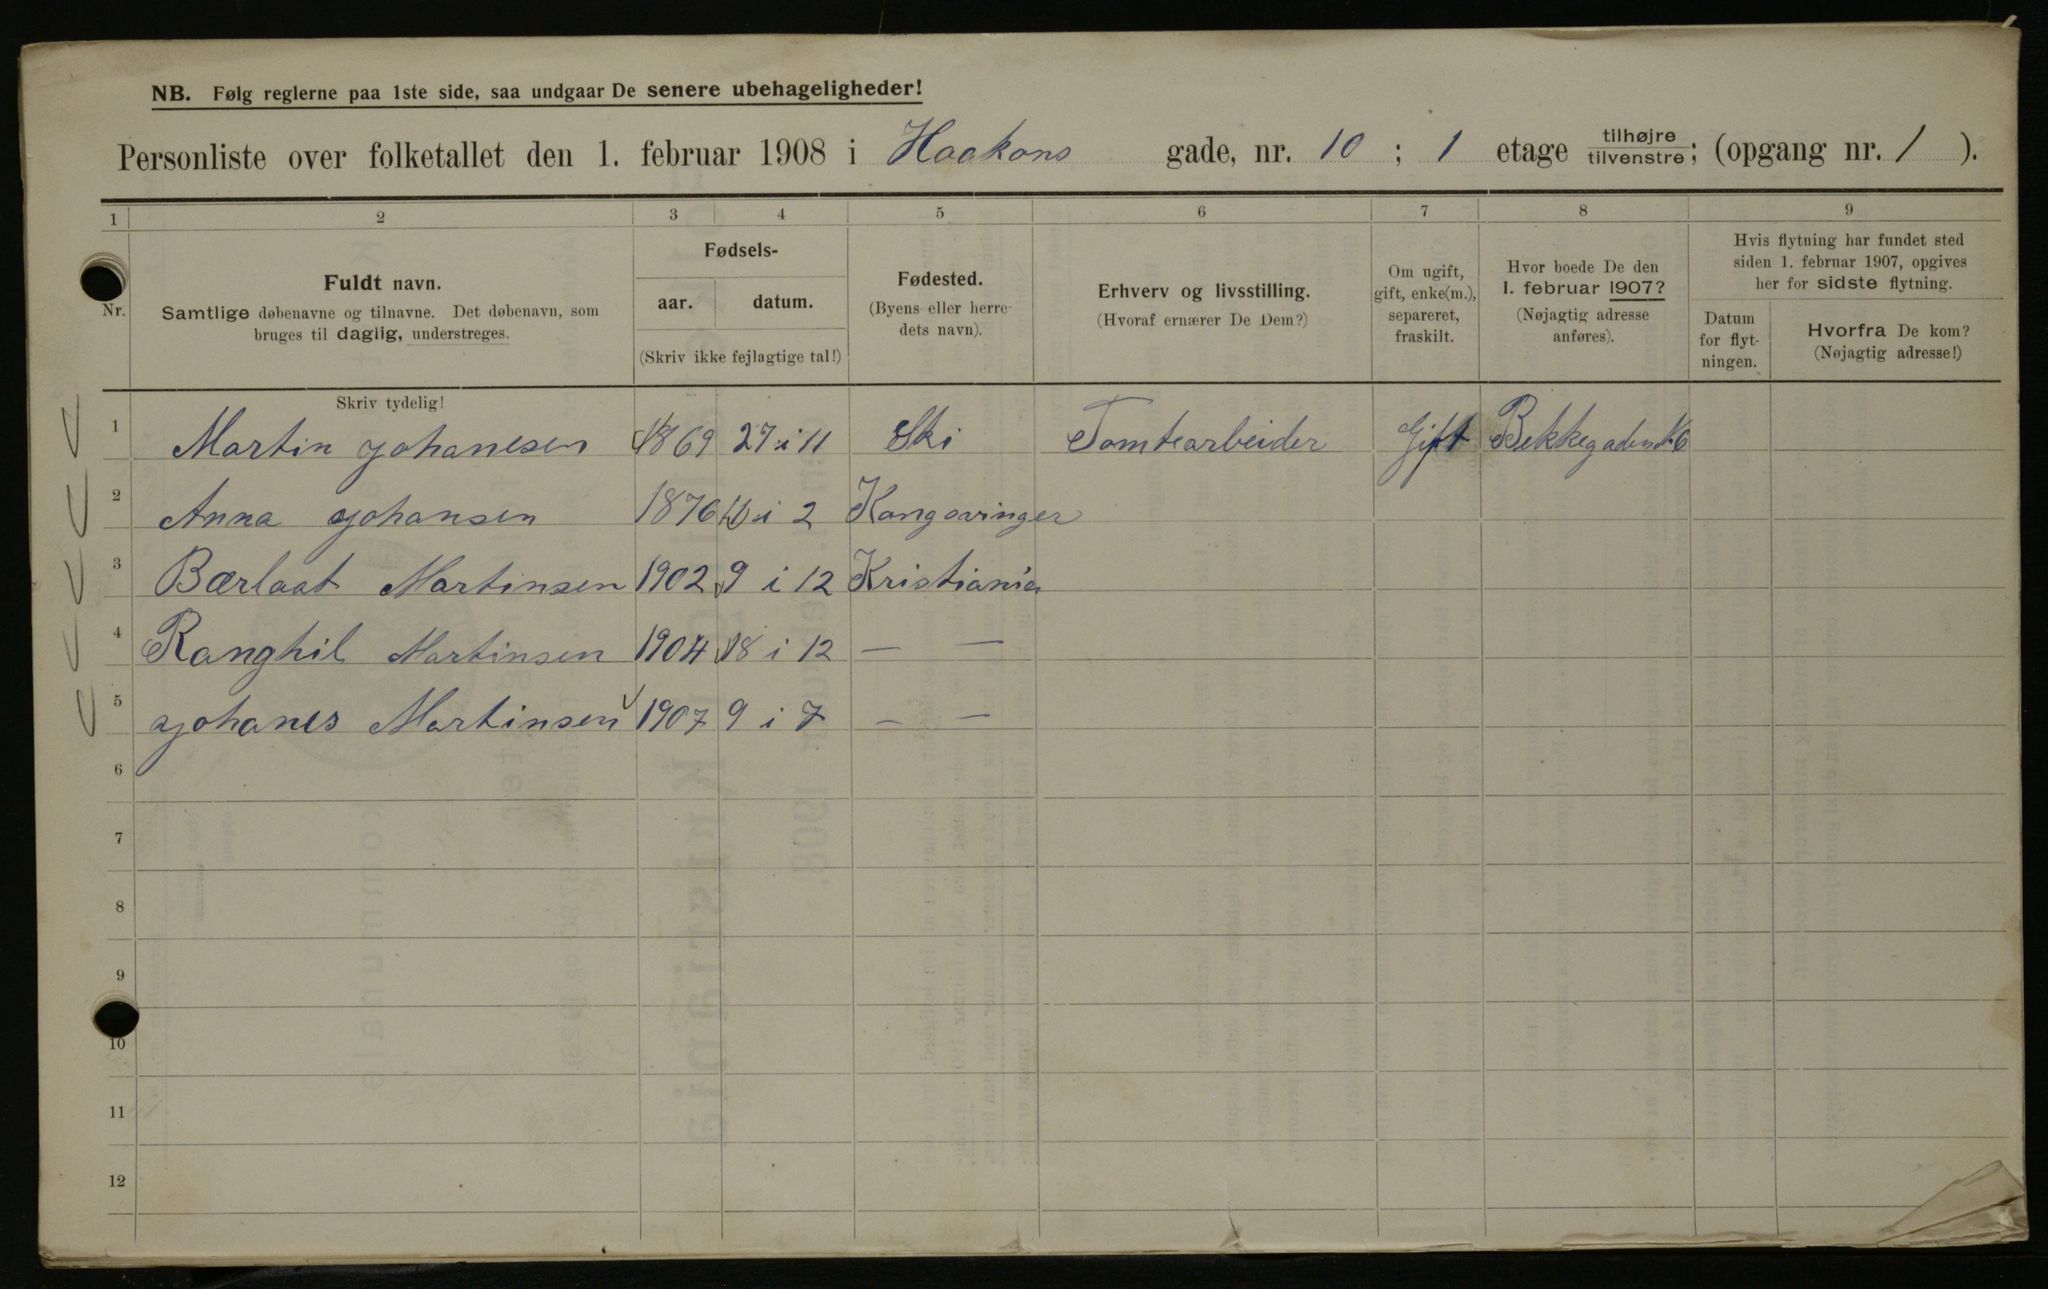 NB. Følg reglerne paa 1ste side, saa undgaar De senere ubehageligheder!
Personliste over folketallet den 1. februar 1908 i Haakons gade, nr. 10 ; 1 etage tilhøjre tilvenstre; (opgang nr. 1 ).
1 2 3 4 5 6 7 8 9
Nr.
Fuldt navn.
Samtlige døbenavne og tilnavne. Det døbenavn, som
bruges til daglig, understreges.
Fødsels-
aar. datum.
(Skriv ikke fejlagtige tal!)
Fødested.
(Byens eller herre-
dets navn).
Erhverv og livsstilling.
(Hvoraf ernærer De Dem?)
Om ugift,
gift, enke(m.),
separeret,
fraskilt.
Hvor boede De den
1. februar 1907?
(Nøjagtig adresse
anføres).
Hvis flytning har fundet sted
siden 1. februar 1907, opgives
her for sidste flytning.
Datum
for flyt-
ningen.
Hvorfra De kom?
(Nøjagtig adresse!)
Skriv tydelig!
1 Martin Johanesen 1869 27 i 11 Ski Tomtearbeider Gift Bekkegaden
2 Anna Johansen 1876 i 2 Kongsvinger
3 Bærlaat Martinsen 1902 9 i 12 Kristiania
4 Ranghil Martinsen 1904 18 i 12 — —
5 Johanes Martinsen 1907 9 i 7 — —
6
7
8
9
10
11
12